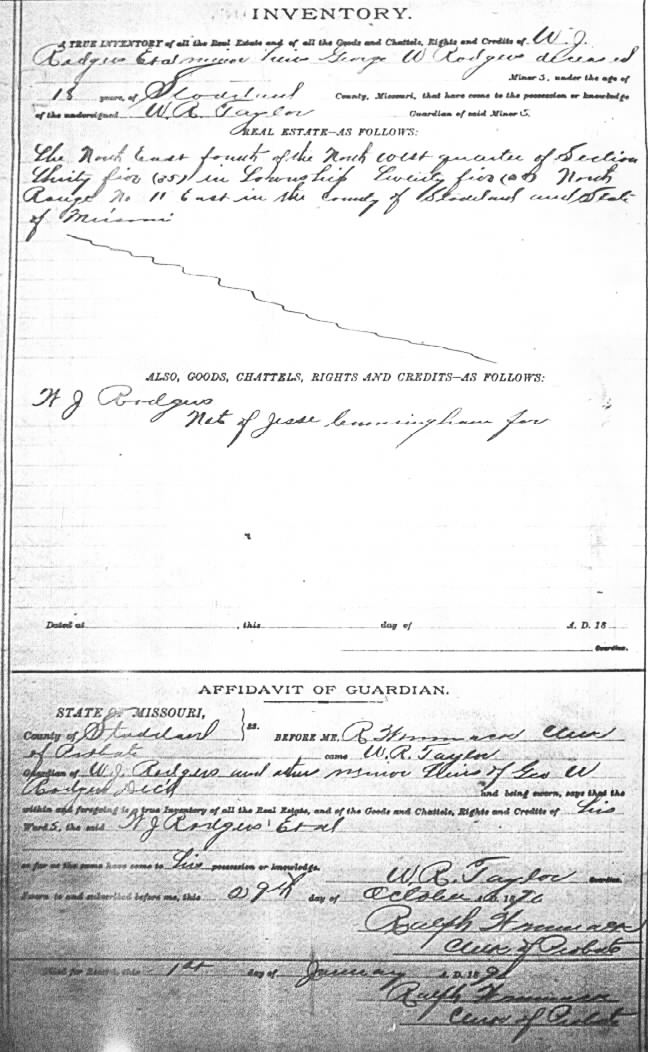 INVENTORY.
A TRUE INVENTORY of all the Real Estate and of all the Goods and Chattels, Rights and Credits of W. J.
Rodgers Et al minor heirs George W Rodgers deceased
Minor s, under the age of
18 years, of Stoddard County, Missouri, that have come to the possession or knowledge
of the undersigned W. R. Taylor Guardian of said Minor s.
REAL ESTATE—AS FOLLOWS:
The North East fourth of the North West quarter of Section
thirty five (35) in Township Twenty five (25) North
Range No 11 East in the County of Stoddard and State
of Missouri
ALSO, GOODS, CHATTELS, RIGHTS AND CREDITS—AS FOLLOWS:
W J Rodgers
Note of Jesse Cunningham for
Dated at , this day of A. D. 18
Guardian.
AFFIDAVIT OF GUARDIAN.
STATE OF MISSOURI,
County of Stoddard } ss. BEFORE ME, R Wammack Clerk
of Probate came W. R. Taylor
Guardian of W. J. Rodgers and other minor Heirs of Geo W
Rodgers Decd and being sworn, says that the
within and foregoing is a true Inventory of all the Real Estate, and of the Goods and Chattels, Rights and Credits of his
Ward s, the said W J Rodgers Et al
so far as the same have come to his possession or knowledge.
W. R. Taylor Guardian.
Sworn to and subscribed before me, this 29th day of October A. D. 18
Ralph Wammack
Clerk of Probate
Filed for Record, this 1st day of January A. D. 18
Ralph Wammack
Clerk of Probate